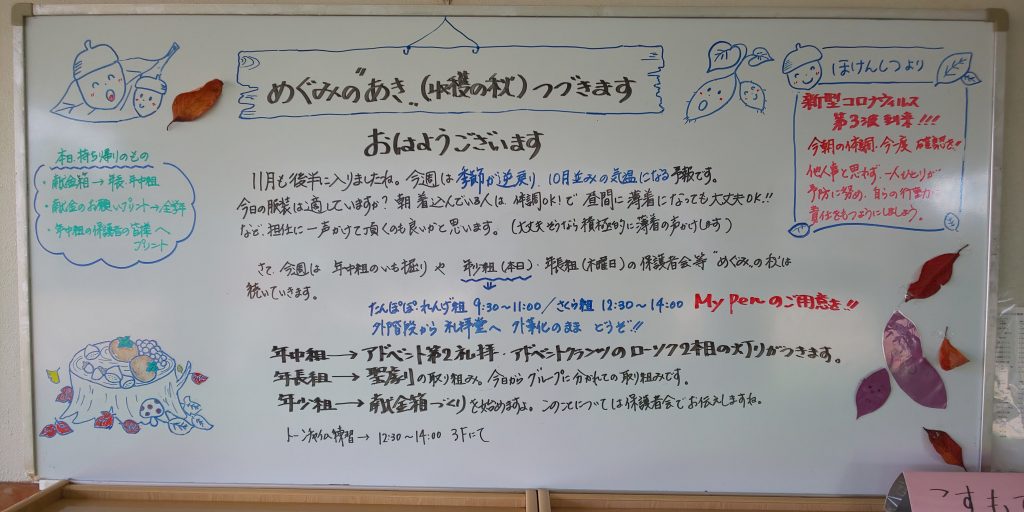 めぐみの"あき"(収穫の秋)つづきます
おはようございます
本日、持ち帰りのもの
・献金箱→年長・年中組
・献金のお願いプリント→全学年
・年中組の保護者の皆様へ
プリント
ほけんしつより
新型コロナウィルス
第3波到来!!!
今朝の体調・今一度 確認を!!
他人事と思わず、一人ひとりが
予防に努め、自らの行動に
責任をもつようにしましょう。
11月も後半に入りましたね。今週は季節が逆戻り、10月並みの気温になる予報です。
今日の服装は適していますか?朝 着込んでいる人は、体調OK!で 昼間に薄着になっても大丈夫OK!!
など、担任に一声かけて頂くのも良いかと思います。(大丈夫そうなら積極的に薄着の声かけします)
さて、今週は 年中組のいも掘り や 年少組(本日)・年長組(木曜日)の保護者会等"めぐみ"の秋は
続いていきます。
たんぽぽ・れんげ組 9:30～11:00/さくら組 12:30～14:00 My penのご用意を!!
外階段から 礼拝堂へ 外部化のまま どうぞ!!
年中組→アドベント第2礼拝・アドベントクランツのローソク2本目の灯りがつきます。
年長組→聖劇の取り組み。今日からグループに分かれての取り組みです。
年少組→献金箱づくりを始めますよ。このことについては保護者会でお伝えしますね。
トーンチャイム練習→ 12:30～14:00 3Fにて
こすもす